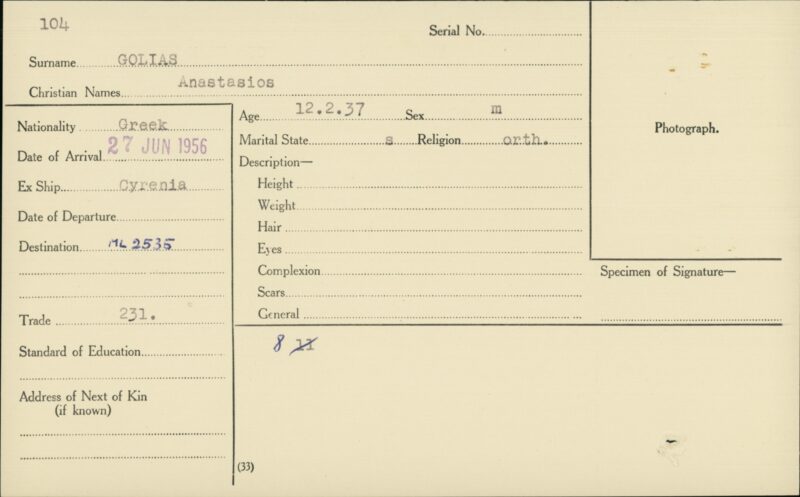 104
Serial No.
Surname GOLIAS
Christian Names Anastasios
Nationality Greek
Date of Arrival 27 JUN 1956
Ex Ship Cyrenia
Date of Departure
Destination ML 2535
Trade 231.
Standard of Education
Address of Next of Kin
(if known)
Age 12.2.37 Sex m
Marital State s Religion orth.
Description—
Height
Weight
Hair
Eyes
Complexion
Scars
General
8 11
(33)
Photograph.
Specimen of Signature—